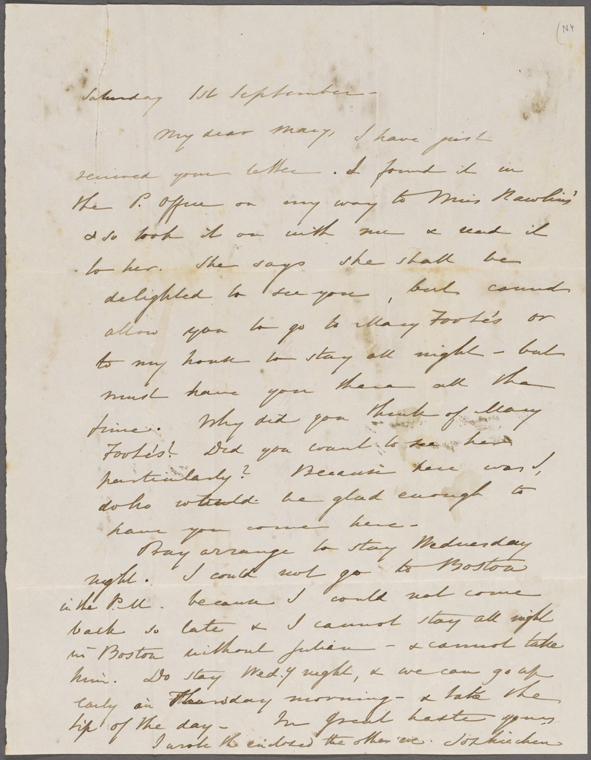 (N4
Saturday 1st September -
My dear Mary, I have just
received your letter. I found it in
the P. Office on my way to Miss Rawlins'
& so took it on with me & read it
to her. She says she shall be
delighted to see you, but cannot
allow you to go to Mary Foote's or
to my house to stay all night - but
must have you there all the
time. Why did you think of Mary
Foote's? Did you want to see her
particularly? Because here was I,
who would be glad enough to
have you come here -
Pray arrange to stay Wednesday
night. I could not go to Boston
in the P.M. because I could not come
back so late & I cannot stay all night
in Boston without Julian - & cannot take
him. Do stay Wedy night, & we can go up
early on Thursday morning - & take the
tip of the day - In great haste yours
I wrote the enclosed the other eve.